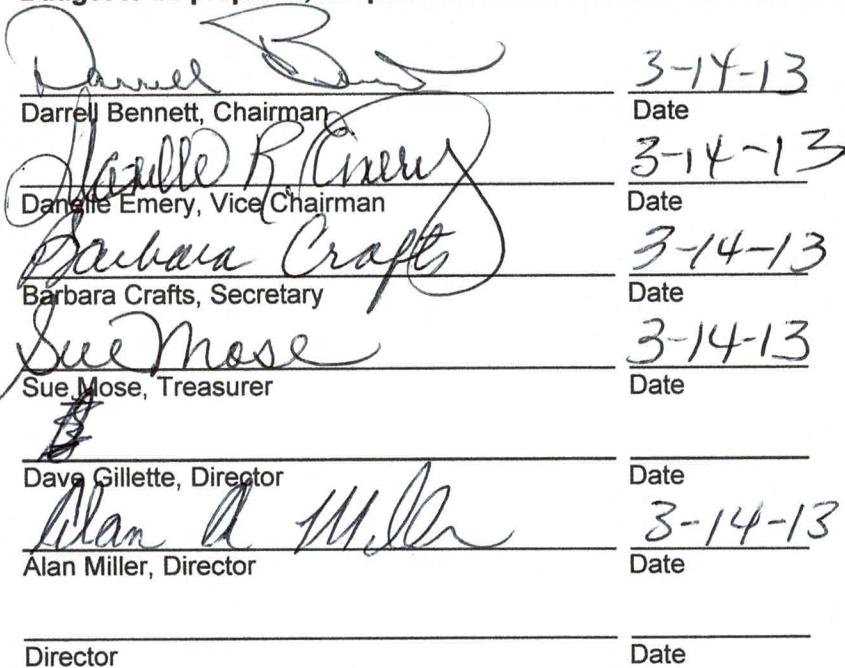 Darrell Bennett 3-14-13
Darrell Bennett, Chairman Date
Danelle R. Emery 3-14-13
Danelle Emery, Vice Chairman Date
Barbara Crafts 3-14-13
Barbara Crafts, Secretary Date
Sue Mose 3-14-13
Sue Mose, Treasurer Date
Dave Gillette, Director Date
Alan A Miller 3-14-13
Alan Miller, Director Date
Director Date